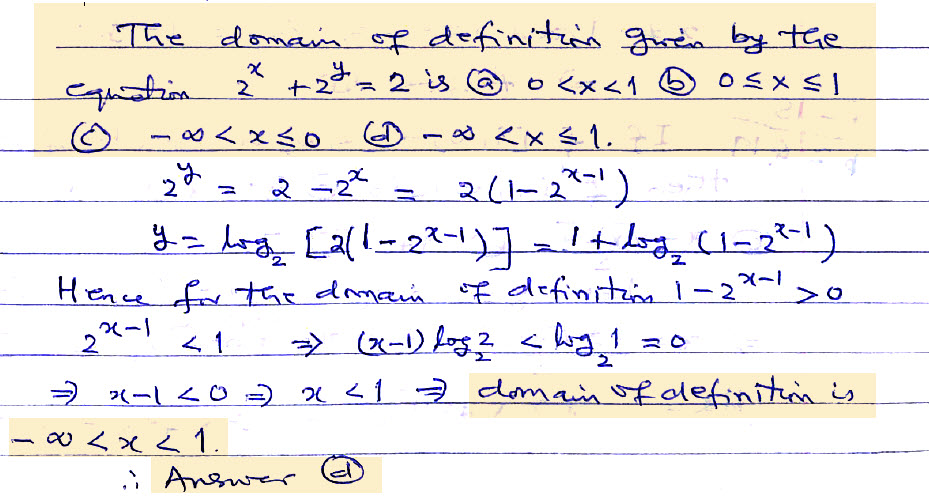 The domain of definition given by the
equation 2^x + 2^y = 2 is ⓐ 0 < x < 1 ⓑ 0 ≤ x ≤ 1
ⓒ - ∞ < x ≤ 0 ⓓ - ∞ < x ≤ 1.
2^y = 2 - 2^x = 2 (1 - 2^{x-1})
y = log_2 [2(1 - 2^{x-1})] = 1 + log_2 (1 - 2^{x-1})
Hence for the domain of definition 1 - 2^{x-1} > 0
2^{x-1} < 1 ⇒ (x-1) log_2 2 < log_2 1 = 0
⇒ x-1 < 0 ⇒ x < 1 ⇒ domain of definition is
- ∞ < x < 1.
∴ Answer ⓓ